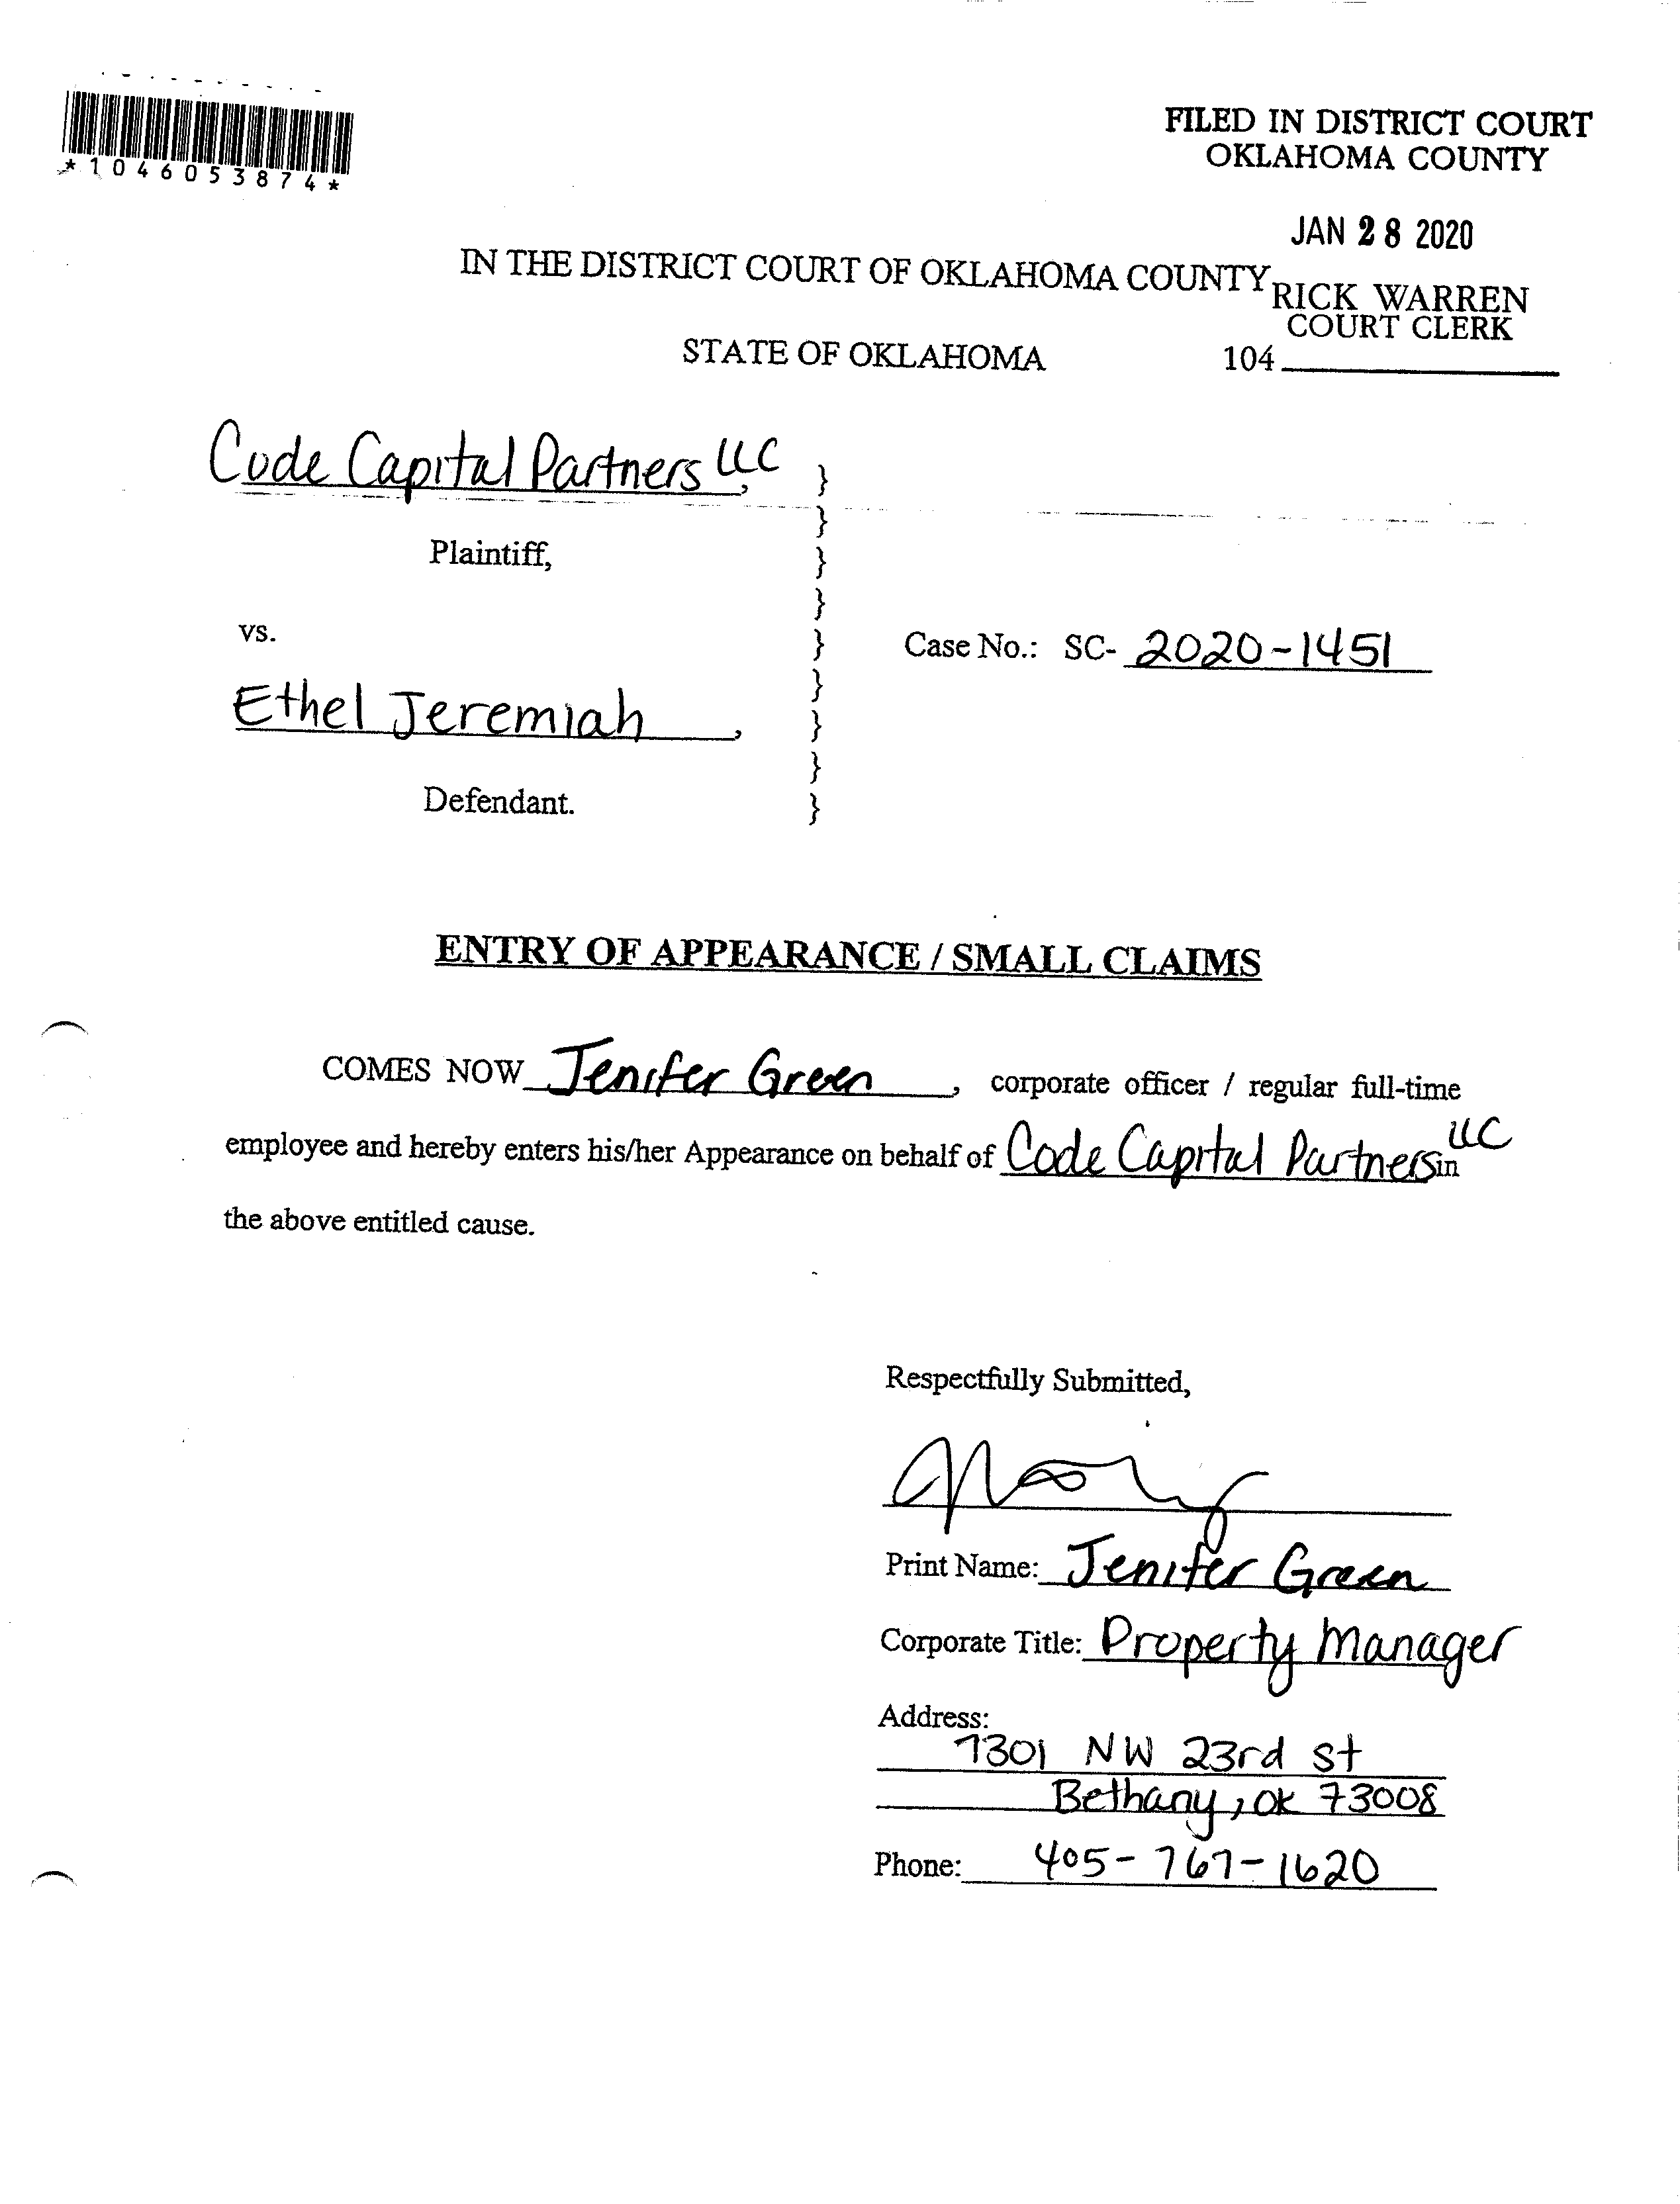 *1046053874*
FILED IN DISTRICT COURT
OKLAHOMA COUNTY
JAN 28 2020
IN THE DISTRICT COURT OF OKLAHOMA COUNTY
RICK WARREN
COURT CLERK
STATE OF OKLAHOMA
104
Code Capital Partners LLC,
}
}
Plaintiff,
}
}
vs.
}
Case No.: SC- 2020-1451
}
Ethel Jeremiah,
}
}
Defendant.
}
ENTRY OF APPEARANCE / SMALL CLAIMS
COMES NOW Jenifer Green, corporate officer / regular full-time
employee and hereby enters his/her Appearance on behalf of Code Capital Partners LLC in
the above entitled cause.
Respectfully Submitted,
Print Name: Jenifer Green
Corporate Title: Property Manager
Address:
7301 NW 23rd St
Bethany, OK 73008
Phone: 405-767-1620